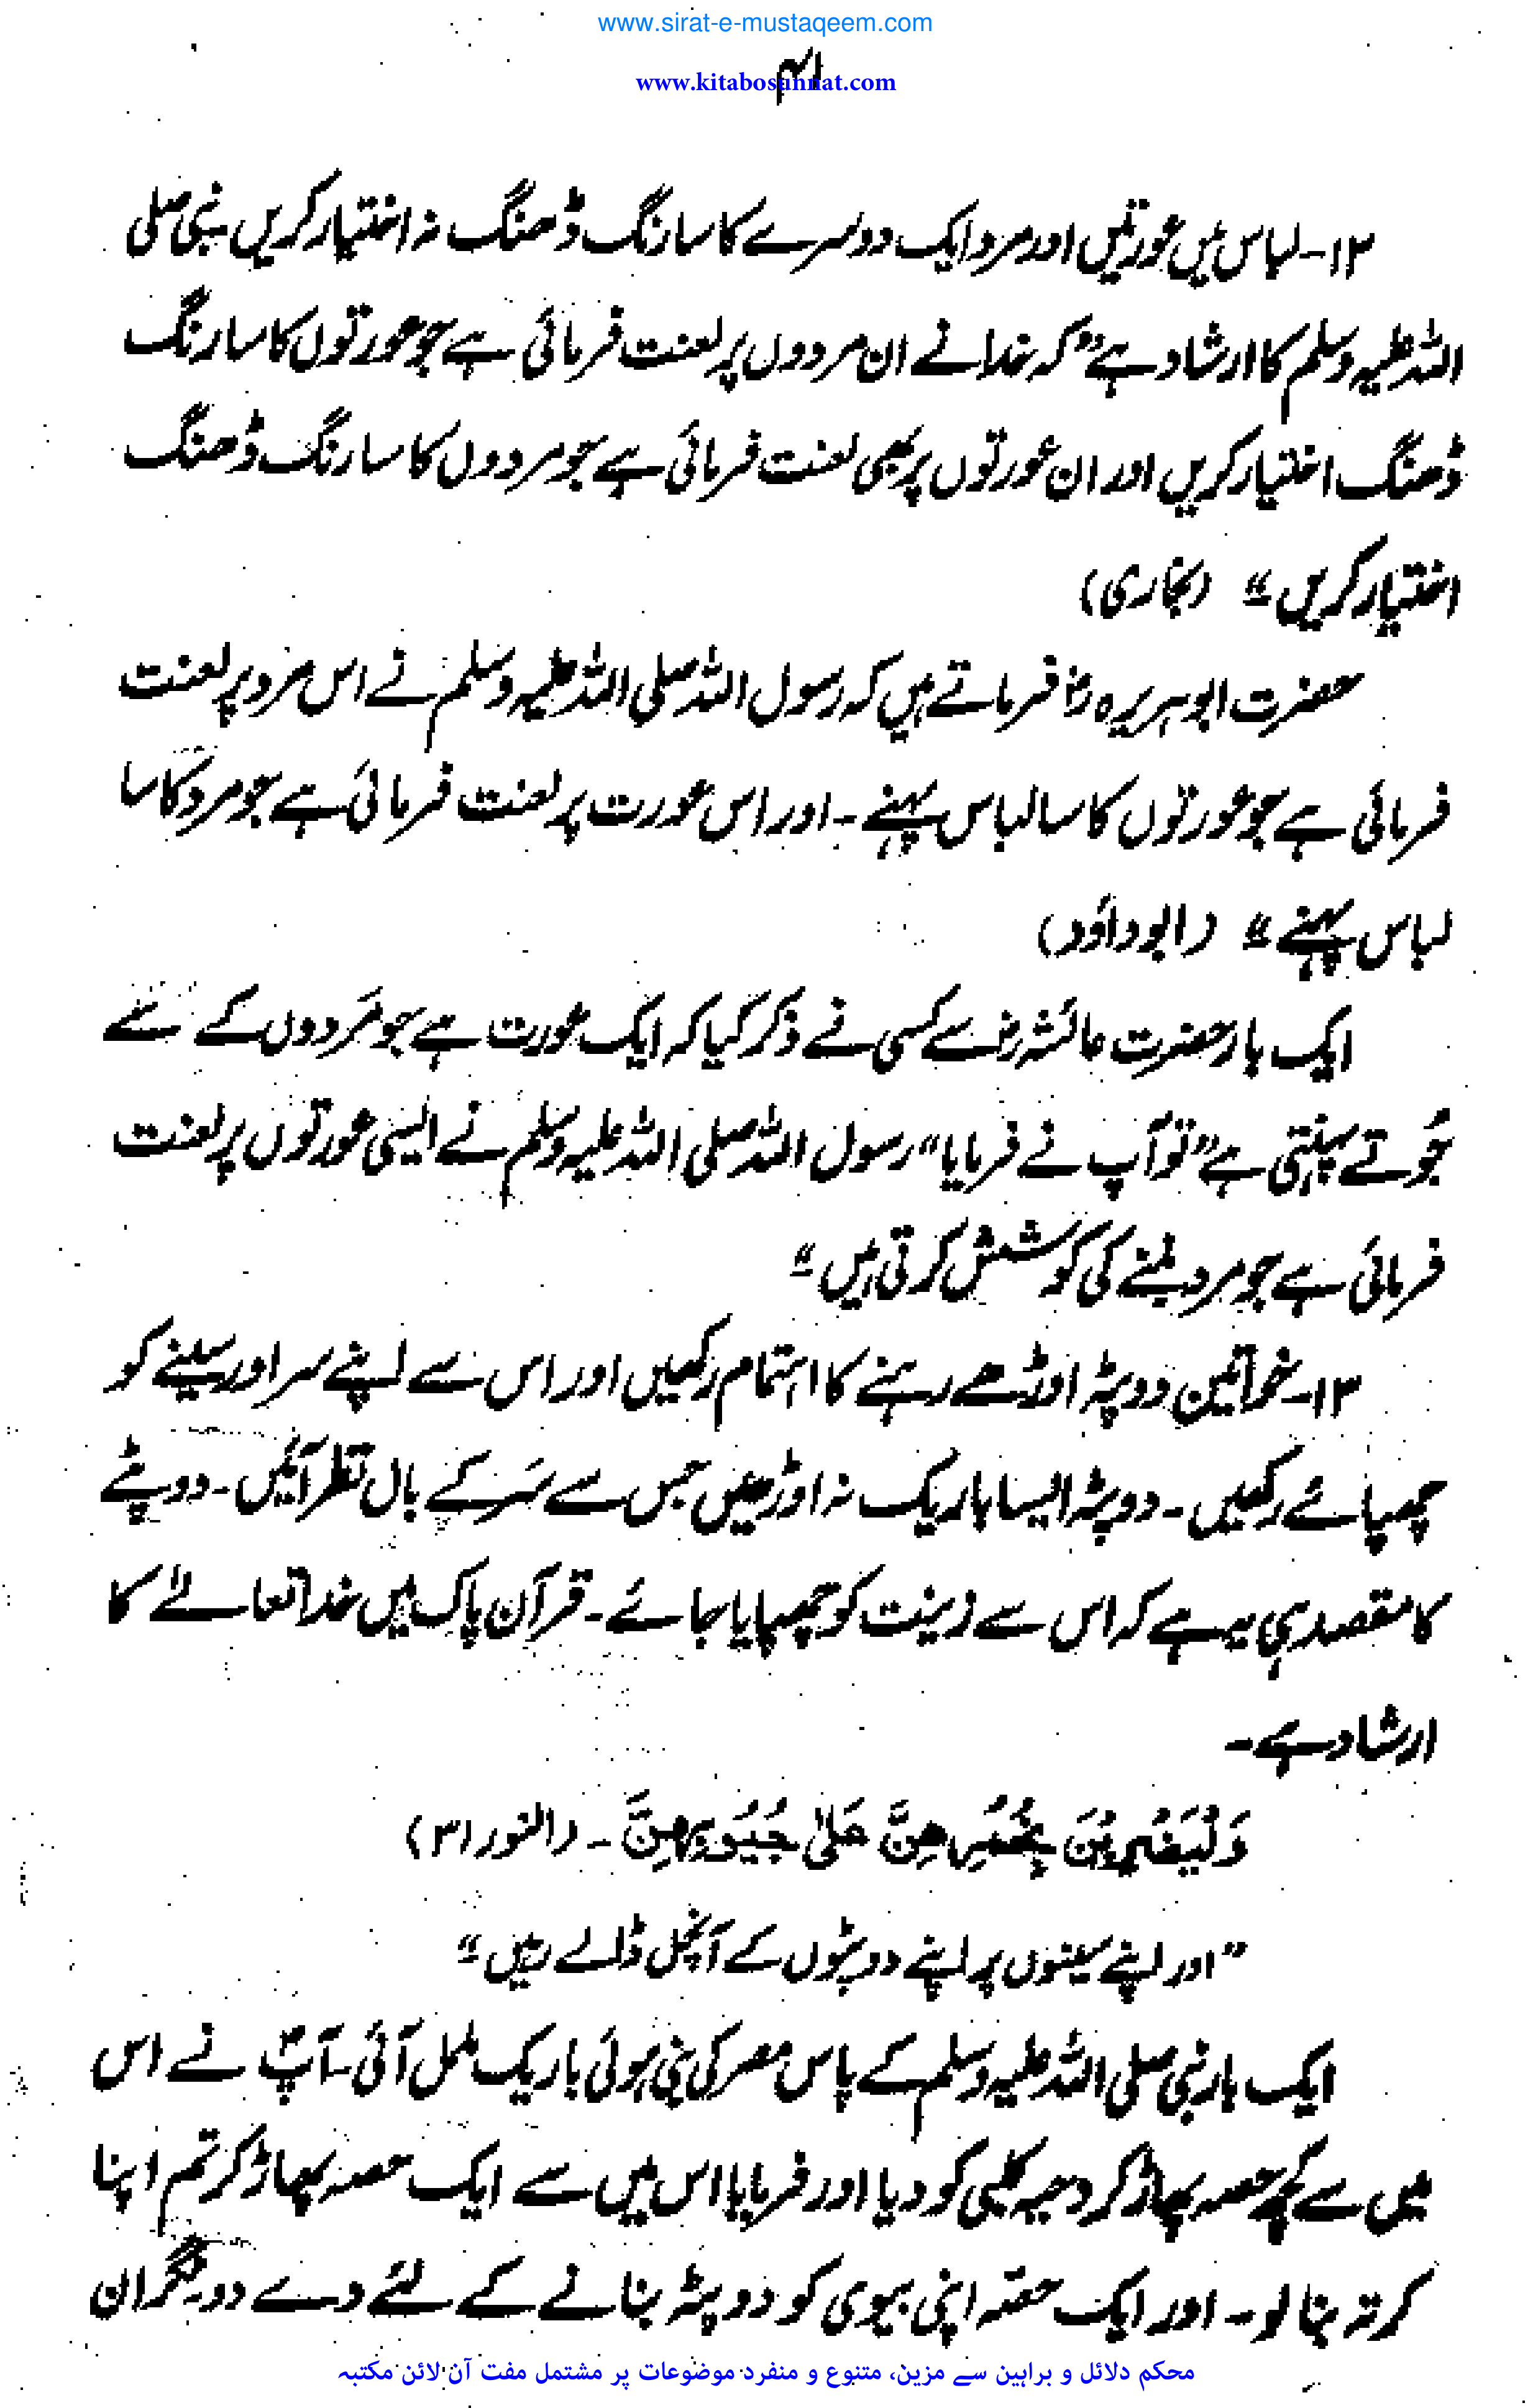 www.sirat-e-mustaqeem.com
۴۱
www.kitabosunnat.com
۱۲۔ لباس میں عورتیں اور مرد ایک دوسرے کا سا رنگ ڈھنگ نہ اختیار کریں نبی صلی
اللہ علیہ وسلم کا ارشاد ہے ”کہ خدا نے ان مردوں پر لعنت فرمائی ہے جو عورتوں کا سا رنگ
ڈھنگ اختیار کریں اور ان عورتوں پر بھی لعنت فرمائی ہے جو مردوں کا سا رنگ ڈھنگ
اختیار کریں“ (بخاری)
حضرت ابوہریرہ رض فرماتے ہیں کہ رسول اللہ صلی اللہ علیہ وسلم نے اس مرد پر لعنت
فرمائی ہے جو عورتوں کا سا لباس پہنے ۔ اور اس عورت پر لعنت فرمائی ہے جو مرد کا سا
لباس پہنے“ (ابوداؤد)
ایک بار حضرت عائشہ رض سے کسی نے ذکر کیا کہ ایک عورت ہے جو مَردوں کے سے
جُوتے پہنتی ہے” تو آپ نے فرمایا“ رسول اللہ صلی اللہ علیہ وسلم نے ایسی عورتوں پر لعنت
فرمائی ہے جو مرد بننے کی کوشش کرتی ہیں“
۱۳۔ خواتین دوپٹہ اوڑھے رہنے کا اہتمام رکھیں اور اس سے اپنے سر اور سینے کو
چھپائے رکھیں ۔ دوپٹہ ایسا باریک نہ اوڑھیں جس سے سَر کے بال نظر آئیں ۔ دوپٹے
کا مقصد ہی یہ ہے کہ اس سے زینت کو چھپایا جائے ۔ قرآن پاک میں خدا تعالےٰ کا
ارشاد ہے ۔
وَلْيَضْرِبْنَ بِخُمُرِهِنَّ عَلىٰ جُيُوبِهِنَّ ۔ (النور ۳۱)
”اور اپنے سینوں پر اپنے دوپٹوں کے آنچل ڈالے رہیں“
ایک بار نبی صلی اللہ علیہ وسلم کے پاس مصر کی بنی ہوئی باریک ململ آئی۔ آپؐ نے اس
میں سے کچھ حصہ پھاڑ کر دحیہ کلبی کو دیا اور فرمایا اس میں سے ایک حصہ پھاڑ کر تم اپنا
کرتہ بنا لو ۔ اور ایک حصّہ اپنی بیوی کو دوپٹہ بنانے کے لئے دے دو۔ مگر ان
محکم دلائل و براہین سے مزین، متنوع و منفرد موضوعات پر مشتمل مفت آن لائن مکتبہ